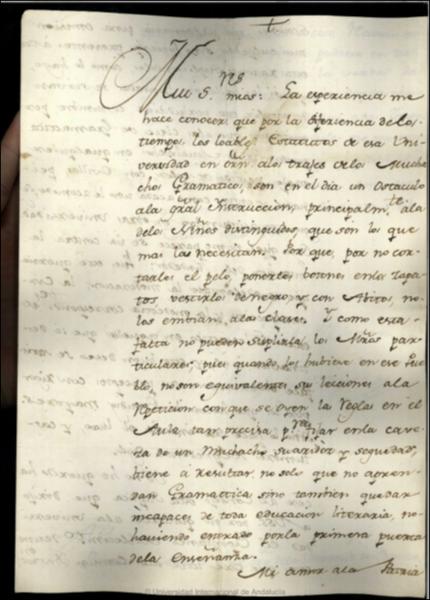 +
Mui S.res mios: La experiencia me
hace conocer que por la diferiencia de los
tiempos los loables Estatutos de esa Uni
versidad en orñ a los trajes de los Mucha
chos Gramaticos, son en el dia un ostaculo
a la gral Yntruccion, principalm.te a la
de los Niños distinguidos, que son los que
mas las necesitan. Por que, por no cor-
tarles el pelo, ponerles botones en los zapa-
tos, vestirlos de negro, y con Abitos, no
los embian a las clases. Y como esta
falta no pueden suplirla los Mños par-
ticulares; pues quando los hubiese en ese Pue
blo, no son equivalentes sus lecciones a la
Repeticion con que se oyen las Reglas en el
Aula, tan precisa para fijar en la cave-
za de un Muchacho su ardor y sequedad,
biene a resultar, no solo que no apren-
dan Gramactica sino tambien quedar
incapaces de toda educacion literaria, no
haviendo entrado por la primera puerta
de la Enseñanza.
Mi amor a la Patria
© Universidad Internacional de Andalucía